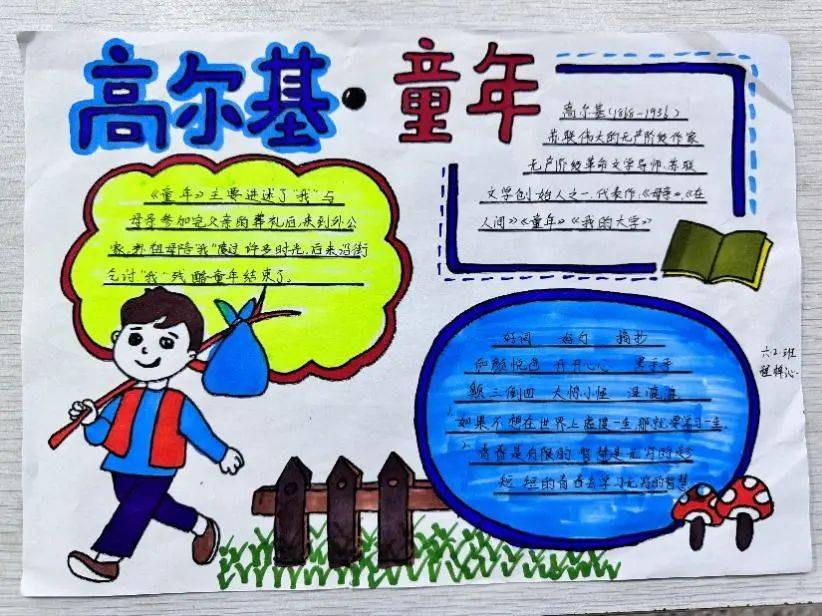 高尔基·童年
高尔基(1868-1936)
苏联伟大的无产阶级作家
无产阶级革命文学导师.苏联
文学创始人之一.代表作:《母亲》.《在
人间》《童年》《我的大学》
《童年》主要讲述了"我"与
母亲参加完父亲的葬礼后,来到外公
家,外祖母陪"我"度过许多时光,后来沿街
乞讨"我"残酷童年结束了。
好词 好句 摘抄
和颜悦色 开开心心
颠三倒四 大惊小怪 湿漉漉
1.如果不想在世界上虚度一生,那就要学习一生.
2.青春是有限的 智慧是无穷的 趁
短短的青春去学习无穷的智慧
六.2.班